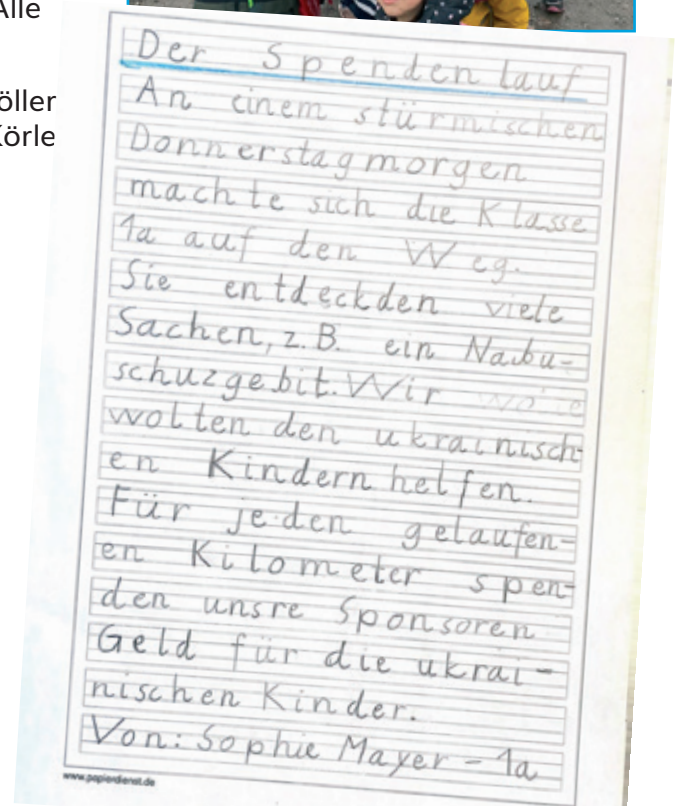 Alle
öller
Körle
Der Spendenlauf
An einem stürmischen
Donnerstagmorgen
machte sich die Klasse
1a auf den Weg.
Sie entdeckden viele
Sachen, z.B. ein Nabu-
schuzgebit. Wir
wolten den ukrainisch-
en Kindern helfen.
Für jeden gelaufen-
en Kilometer spen-
den unsre Sponsoren
Geld für die ukrai-
nischen Kinder.
Von: Sophie Mayer - 1a
www.papierdienst.de